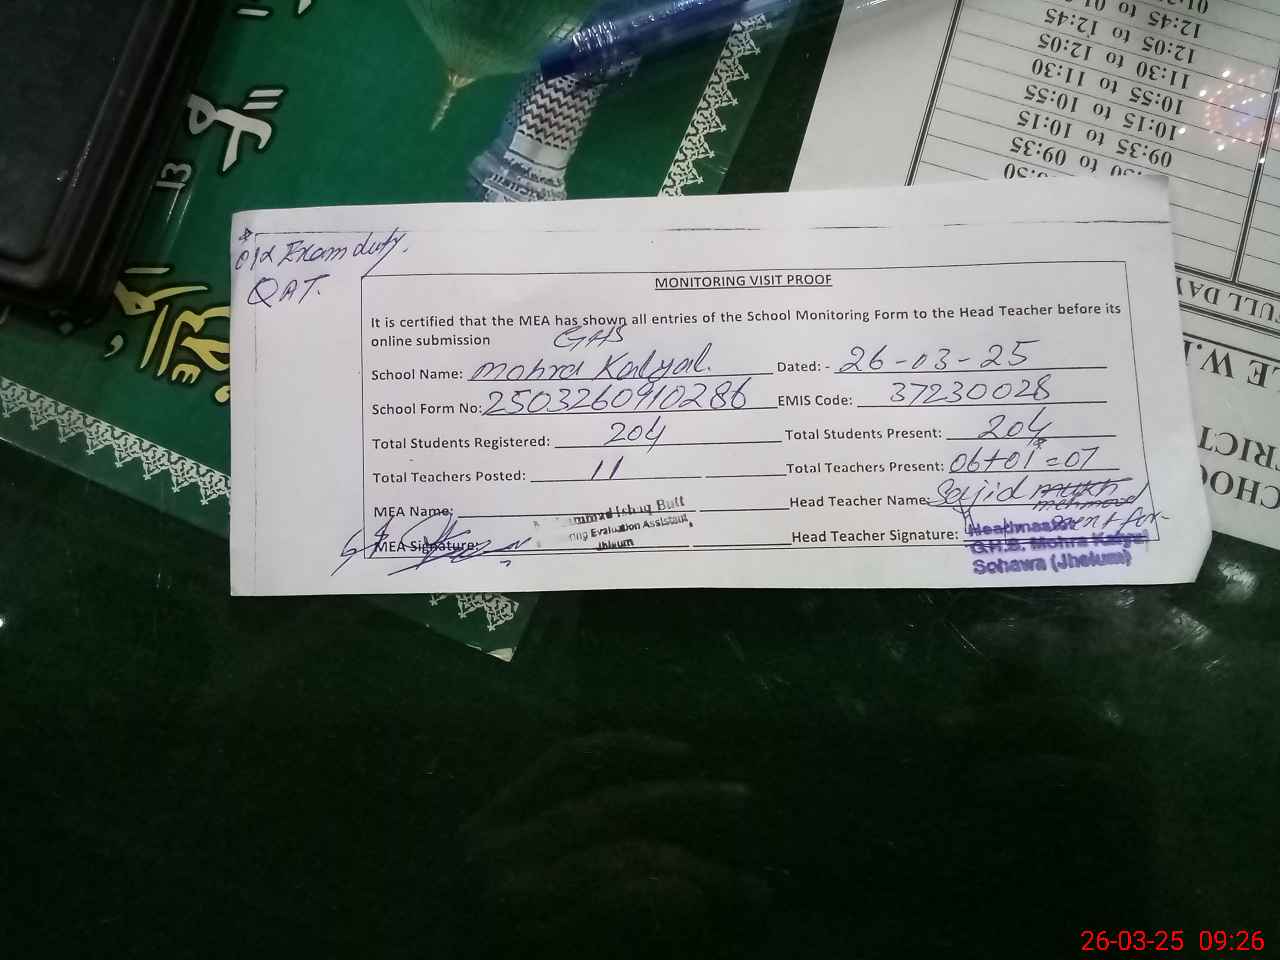 12:45 to 01
12:05 to 12:45
11:30 to 12:05
10:55 to 11:30
10:15 to 10:55
09:35 to 10:15
to 09:35
FULL DAY
Exam duty.
QAT.
MONITORING VISIT PROOF
It is certified that the MEA has shown all entries of the School Monitoring Form to the Head Teacher before its
online submission
GHS
School Name: Mohra Kalyal. Dated: - 26-03-25
School Form No: 2503260910286 EMIS Code: 37230028
Total Students Registered: 204 Total Students Present: 204
Total Teachers Posted: 11 Total Teachers Present: 06+01=07
MEA Name: Ishaq Butt Head Teacher Name: Sajid mehmood
Evaluation Assistant,
Jhelum
MEA Signature: Head Teacher Signature:
Headmaster
G.H.S. Mohra Kalyal
Sohawa (Jhelum)
26-03-25 09:26